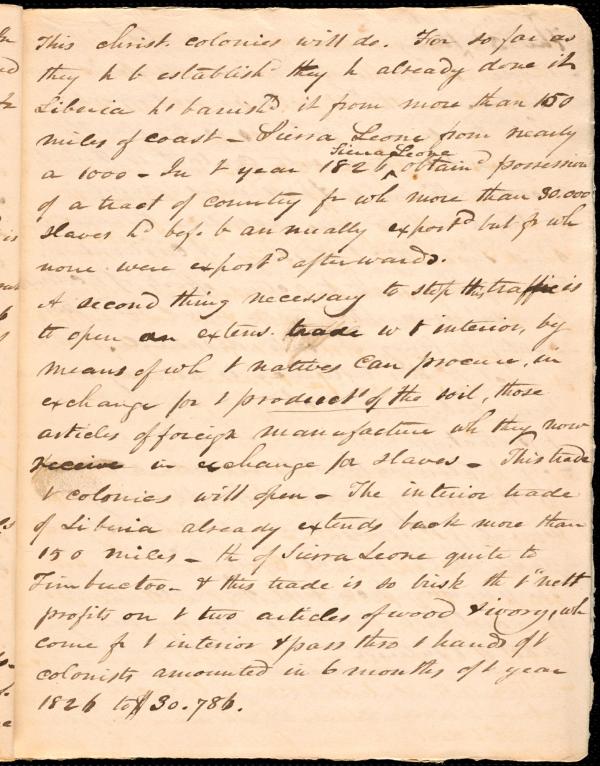 This christ. colonies will do. For so far as
they h b establishd they h already done it
Liberia hs banishd it from more than 150
miles of coast – Sierra Leone from nearly
a 1000 – In t year 1826 ^ Sierra Leone obtaind possession
of a tract of country fr wh more than 30.000
slaves hd bef. b annually exportd but fr wh
none were exportd afterwards.
A second thing necessary to stop this traffic is
to open an extens. trade w t interior, by
means of wh t natives can procure, in
exchange for t products of the soil, those
articles of foreign manufacture wh they now
receive in exchange for slaves – This trade
t colonies will open – The interior trade
of Liberia already extends back more than
150 miles – th of Sierra Leone quite to
Timbuctoo – & this trade is so brisk th t nett
profits on t two articles of wood & ivory, wh
come fr t interior & pass thro t hands of t
colonists amounted in 6 months of t year
1826 to $30.786.